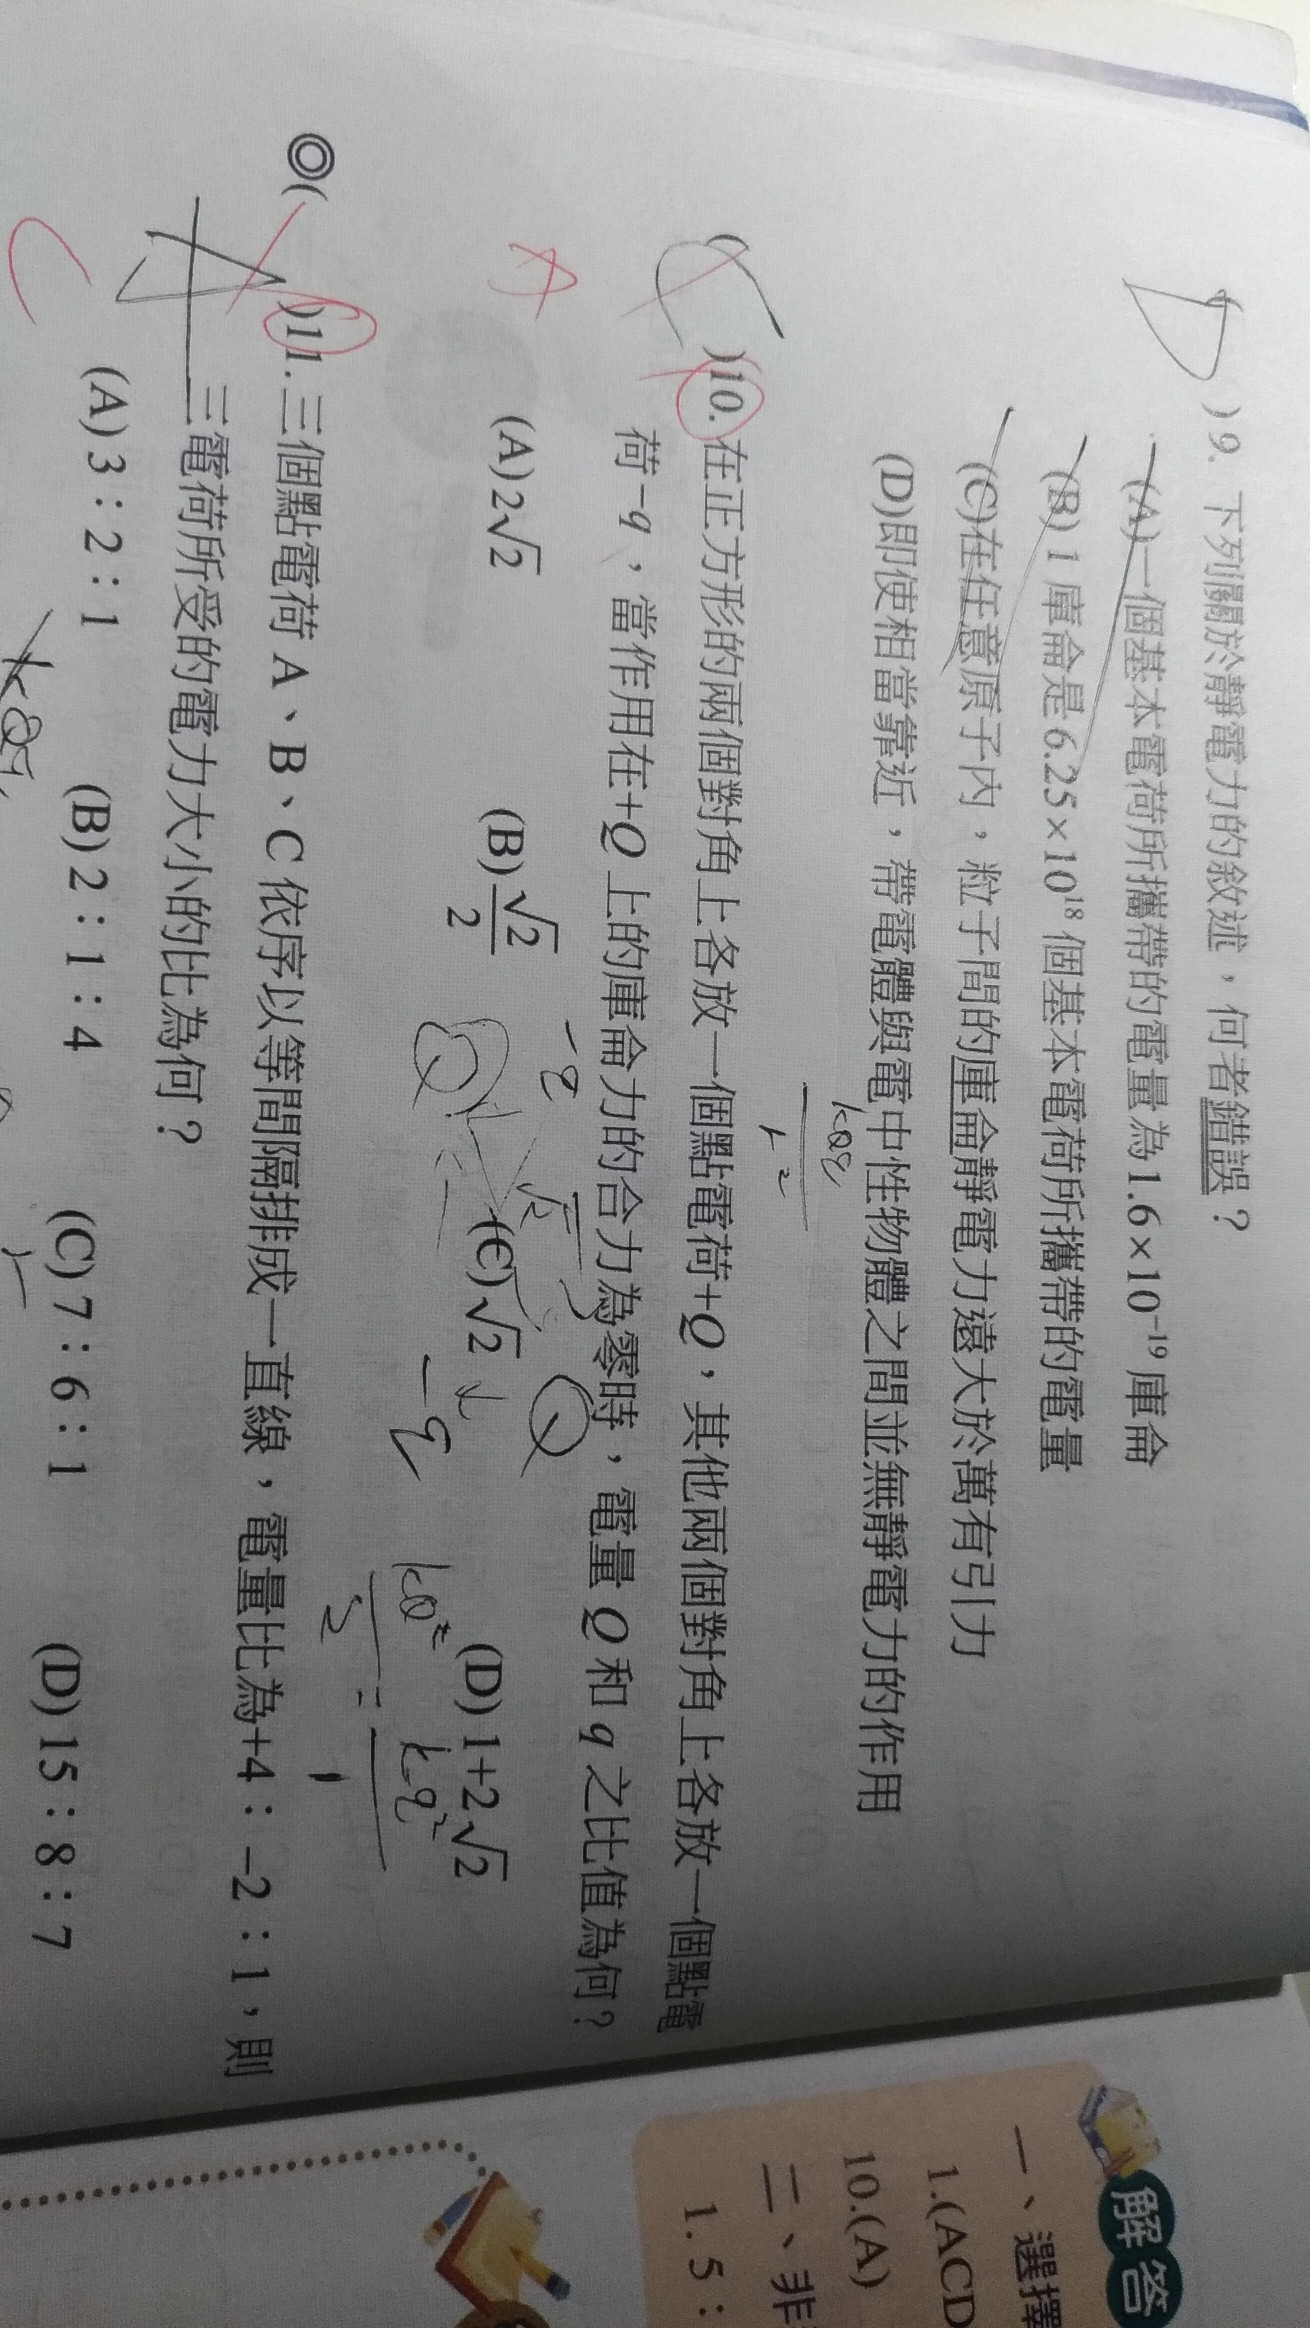 D )9. 下列關於靜電力的敘述，何者錯誤？
(A)一個基本電荷所攜帶的電量為1.6×10⁻¹⁹庫侖
(B) 1 庫侖是6.25×10¹⁸個基本電荷所攜帶的電量
(C)在任意原子內，粒子間的庫侖靜電力遠大於萬有引力
(D)即使相當靠近，帶電體與電中性物體之間並無靜電力的作用
( C )10. 在正方形的兩個對角上各放一個點電荷+Q，其他兩個對角上各放一個點電
荷−q，當作用在+Q上的庫侖力的合力為零時，電量Q和q之比值為何？
A
(A) 2√2 (B) √2/2 (C) √2 (D) 1+2√2
-q
Q
√2
Q
-q
kQ² = kq²
2 1
◎( )11. 三個點電荷A、B、C依序以等間隔排成一直線，電量比為+4：−2：1，則
三電荷所受的電力大小的比為何？
C
(A) 3：2：1 (B) 2：1：4 (C) 7：6：1 (D) 15：8：7
解答
一、選擇
1.(ACD
10.(A)
二、非
1. 5：